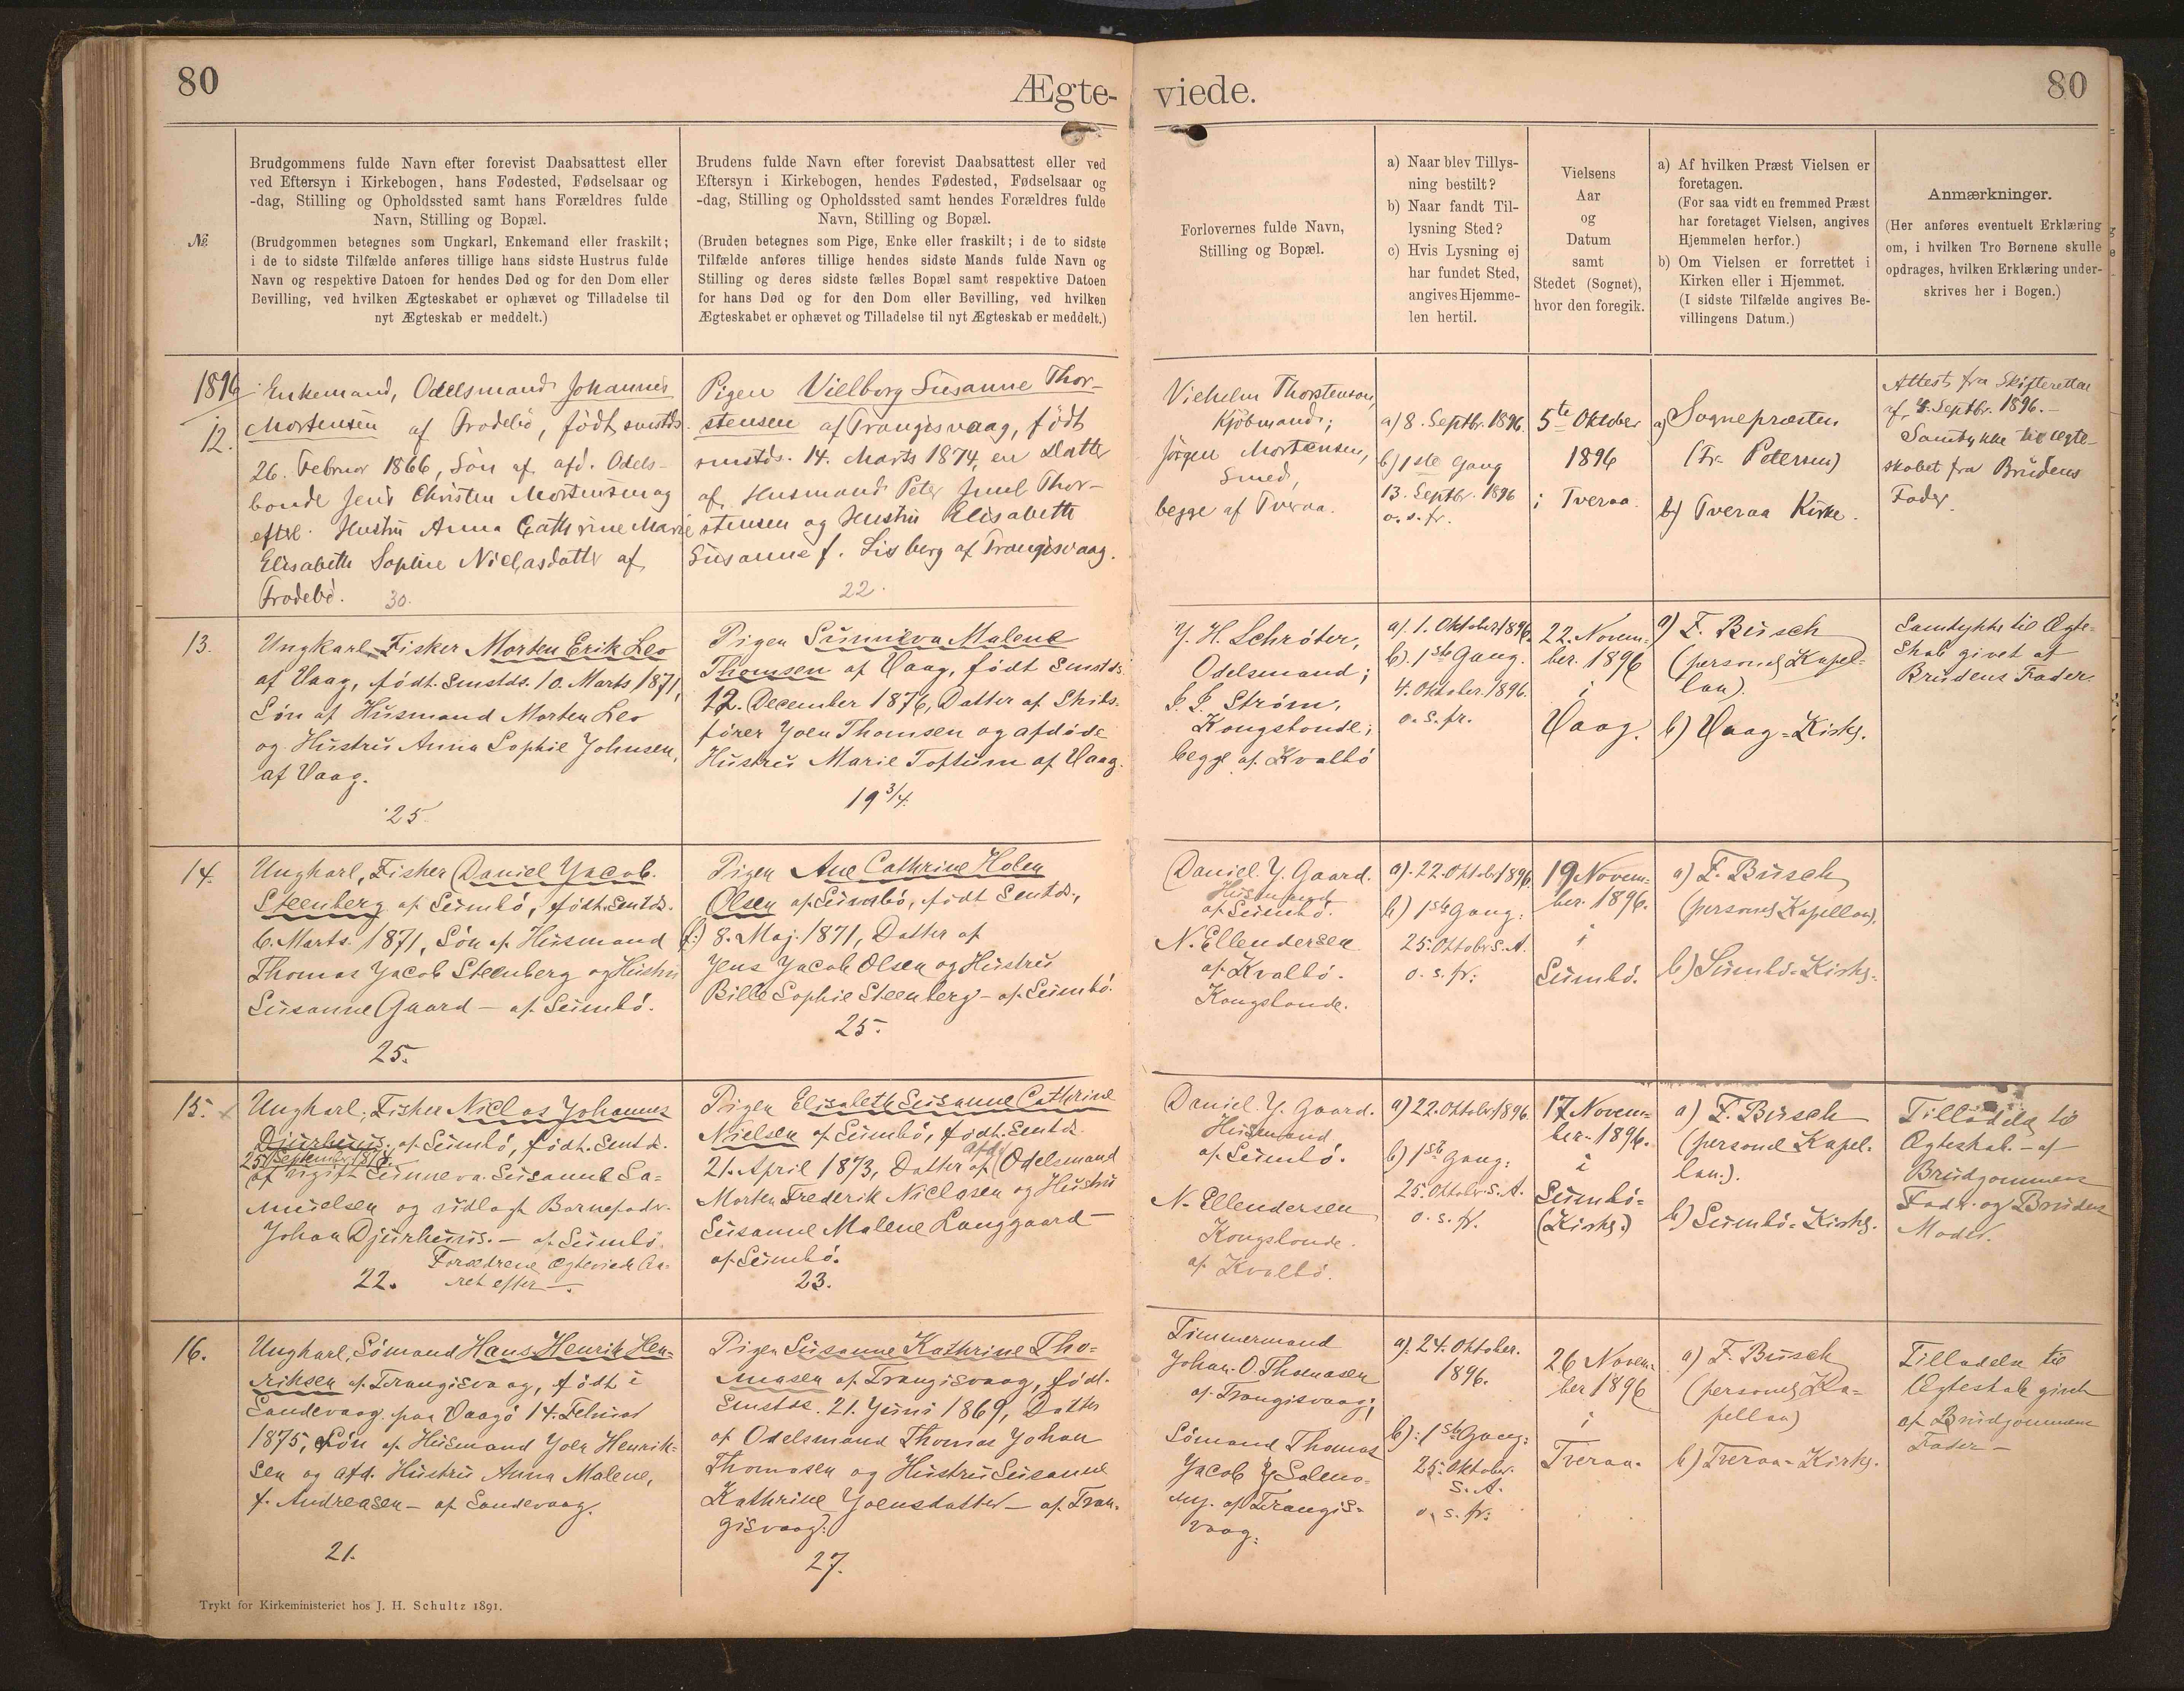 80
Ægte-
viede.
80
№
Brudgommens fulde Navn efter forevist Daabsattest eller
ved Eftersyn i Kirkebogen, hans Fødested, Fødselsaar og
-dag, Stilling og Opholdssted samt hans Forældres fulde
Navn, Stilling og Bopæl.
(Brudgommen betegnes som Ungkarl, Enkemand eller fraskilt;
i de to sidste Tilfælde anføres tillige hans sidste Hustrus fulde
Navn og respektive Datoen for hendes Død og for den Dom eller
Bevilling, ved hvilken Ægteskabet er ophævet og Tilladelse til
nyt Ægteskab er meddelt.)
Brudens fulde Navn efter forevist Daabsattest eller ved
Eftersyn i Kirkebogen, hendes Fødested, Fødselsaar og
-dag, Stilling og Opholdssted samt hendes Forældres fulde
Navn, Stilling og Bopæl.
(Bruden betegnes som Pige, Enke eller fraskilt; i de to sidste
Tilfælde anføres tillige hendes sidste Mands fulde Navn og
Stilling og deres sidste fælles Bopæl samt respektive Datoen
for hans Død og for den Dom eller Bevilling, ved hvilken
Ægteskabet er ophævet og Tilladelse til nyt Ægteskab er meddelt.)
Forlovernes fulde Navn,
Stilling og Bopæl.
a) Naar blev Tillys-
ning bestilt?
b) Naar fandt Til-
lysning Sted?
c) Hvis Lysning ej
har fundet Sted,
angives Hjemme-
len hertil.
Vielsens
Aar
og
Datum
samt
Stedet (Sognet),
hvor den foregik.
a) Af hvilken Præst Vielsen er
foretagen.
(For saa vidt en fremmed Præst
har foretaget Vielsen, angives
Hjemmelen herfor.)
b) Om Vielsen er forrettet i
Kirken eller i Hjemmet.
(I sidste Tilfælde angives Be-
villingens Datum.)
Anmærkninger.
(Her anføres eventuelt Erklæring
om, i hvilken Tro Børnene skulle
opdrages, hvilken Erklæring under-
skrives her i Bogen.)
1896
12.
Enkemand, Odelsmand Johannes
Mortensen af Frodebø, født smstds.
26. Februar 1866, Søn af afd. Odels-
bonde Jens Christen Mortensen og
eftel. Hustru Anna Cathrine Marie
Elisabeth Sophie Niclasdatter af
Frodebø. 30.
Pigen Vielborg Susanne Thor-
stensen af Trangisvaag, født
smstds. 14. Marts 1874, en Datter
af Husmand Peter Juul Thor-
stensen og Hustru Elisabeth
Susanne f. Lisberg af Trangisvaag.
22.
Vilhelm Thorstensen,
Kjøbmand;
Jørgen Mortensen,
Smed,
begge af Tveraa.
a) 8. Septbr. 1896.
b) 1ste Gang
13. Septbr. 1896
o.s.fr.
5te Oktober
1896
i Tveraa.
a) Sognepræsten
(Fr. Petersen)
b) Tveraa Kirke.
Attest fra Skifteretten
af 4. Septbr. 1896.-
Samtykke til Ægte-
skabet fra Brudens
Fader.
13.
Ungkarl, Fisker Morten Erik Leo
af Vaag, født Smstds. 10. Marts 1871,
Søn af Husmand Morten Leo
og Hustru Anna Sophie Johnsen,
af Vaag.
25.
Pigen Sunneva Malene
Thomsen af Vaag, født Smstds.
12. December 1876, Datter af Skibs-
fører Joen Thomsen og afdøde
Hustru Marie Toftum af Vaag.
19 3/4.
J. H. Schrøter,
Odelsmand;
Strøm,
Kongsbonde;
begge af Kvalbø
a). 1. Oktober 1896.
b). 1ste Gang.
4. Oktober 1896.
o. s. fr.
22. Novem-
ber. 1896
i
Vaag.
a) F. Busch
(personel Kapel-
lan).
b) Vaag-Kirke.
Samtykke til Ægte-
skab givet af
Brudens Fader.
14.
Ungkarl, Fisker Daniel Jacob
Steenberg af Sumbø, født Smstds.
6. Marts. 1871, Søn af Husmand
Thomas Jacob Steenberg og Hustru
Susanne Gaard - af Sumbø.
25.
Pigen Ane Cathrine Helen
Olsen af Sumbø, født Smstds.,
8. Maj. 1871, Datter af
Jens Jacob Olsen og Hustru
Bille Sophie Steenberg - af Sumbø.
25.
Daniel J. Gaard.
Husmand
af Sumbø.
N. Ellendersen
af Kvalbø.
Kongsbonde.
a). 22. Oktober 1896.
b) 1ste Gang:
25. Oktober S. A.
o. s. fr.
19 Novem-
ber. 1896.
i
Sumbø.
a) F. Busch
(personel Kapellan).
b) Sumbø-Kirke.
15.
Ungkarl, Fisker Niclas Johannes
Djurhuus. af Sumbø, født. Smstds.
25. September 1874.
af ugift Sunneva Susanne Sa-
muelsen og udlagt Barnefader
Johan Djurhuus. - af Sumbø.
Forældrene ægteviede Aa-
ret efter -.
22.
Pigen Elisabeth Susanne Cathrine
Nielsen af Sumbø, født. Smstds
21. April 1873, Datter af afd. Odelsmand
Morten Frederik Niclasen og Hustru
Susanne Malene Langgaard -
af Sumbø.
23.
Daniel J. Gaard.
Husmand
af Sumbø.
N. Ellendersen
Kongsbonde.
af Kvalbø.
a) 22. Oktober 1896.
b) 1ste Gang:
25. Oktober. S. A.
o. s. fr.
17 Novem-
ber. 1896.
i
Sumbø-
(Kirke.)
a) F. Busch
(personel Kapel-
lan.).
b) Sumbø-Kirke.
Tilladelse til
Ægteskab. - af
Brudgommens
Fader. og Brudens
Moder.
16.
Ungkarl, Sømand Hans Henrik Hen-
riksen af Trangisvaag, født i
Sandevaag paa Vaagø 14. Februar
1875, Søn af Husmand Joen Henrik-
sen og afd. Hustru Anna Malene,
f. Andreasen - af Sandevaag.
21.
Pigen Susanne Kathrine Tho-
masen af Trangisvaag, født.
Smstds. 21. Juni 1869, Datter
af Odelsmand Thomas Johan
Thomasen og Hustru Susanne
Kathrine Joensdatter - af Tran-
gisvaag.
27.
Tømmermand
Johan O. Thomasen
af Trangisvaag;
Sømand Thomas
Jacob
af Trangis-
vaag.
a). 24. Oktober.
1896.
b): 1ste Gang:
25. Oktober.
S. A.
o. s. fr.
26 Novem-
ber 1896
i
Tveraa.
a) F. Busch
(personel Ka-
pellan)
b) Tveraa-Kirke.
Tilladelse til
Ægteskab givet
af Brudgommens
Fader -
Trykt for Kirkeministeriet hos J. H. Schultz 1891.